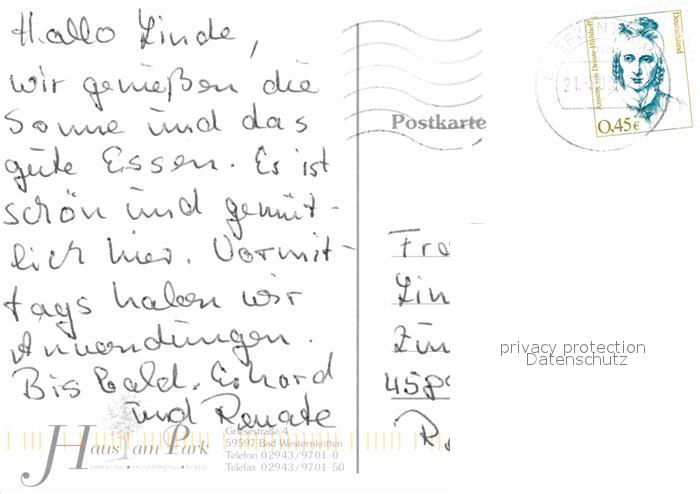 Hallo Linde,
wir genießen die
Sonne und das
gute Essen. Es ist
schön und gemüt-
lich hier. Vormit-
tags haben wir
Anwendungen.
Bis bald. Erhard
und Renate
Haus am Park
ERHOLUNG • ENTSPANNUNG • KUREN
Griesestraße 4
59597 Bad Westernkotten
Telefon 02943/9701-0
Telefax 02943/9701-50
Postkarte
Deutschland
Annette von Droste-Hülshoff
0,45€
21.
Fra
Lin
458
privacy protection
Datenschutz